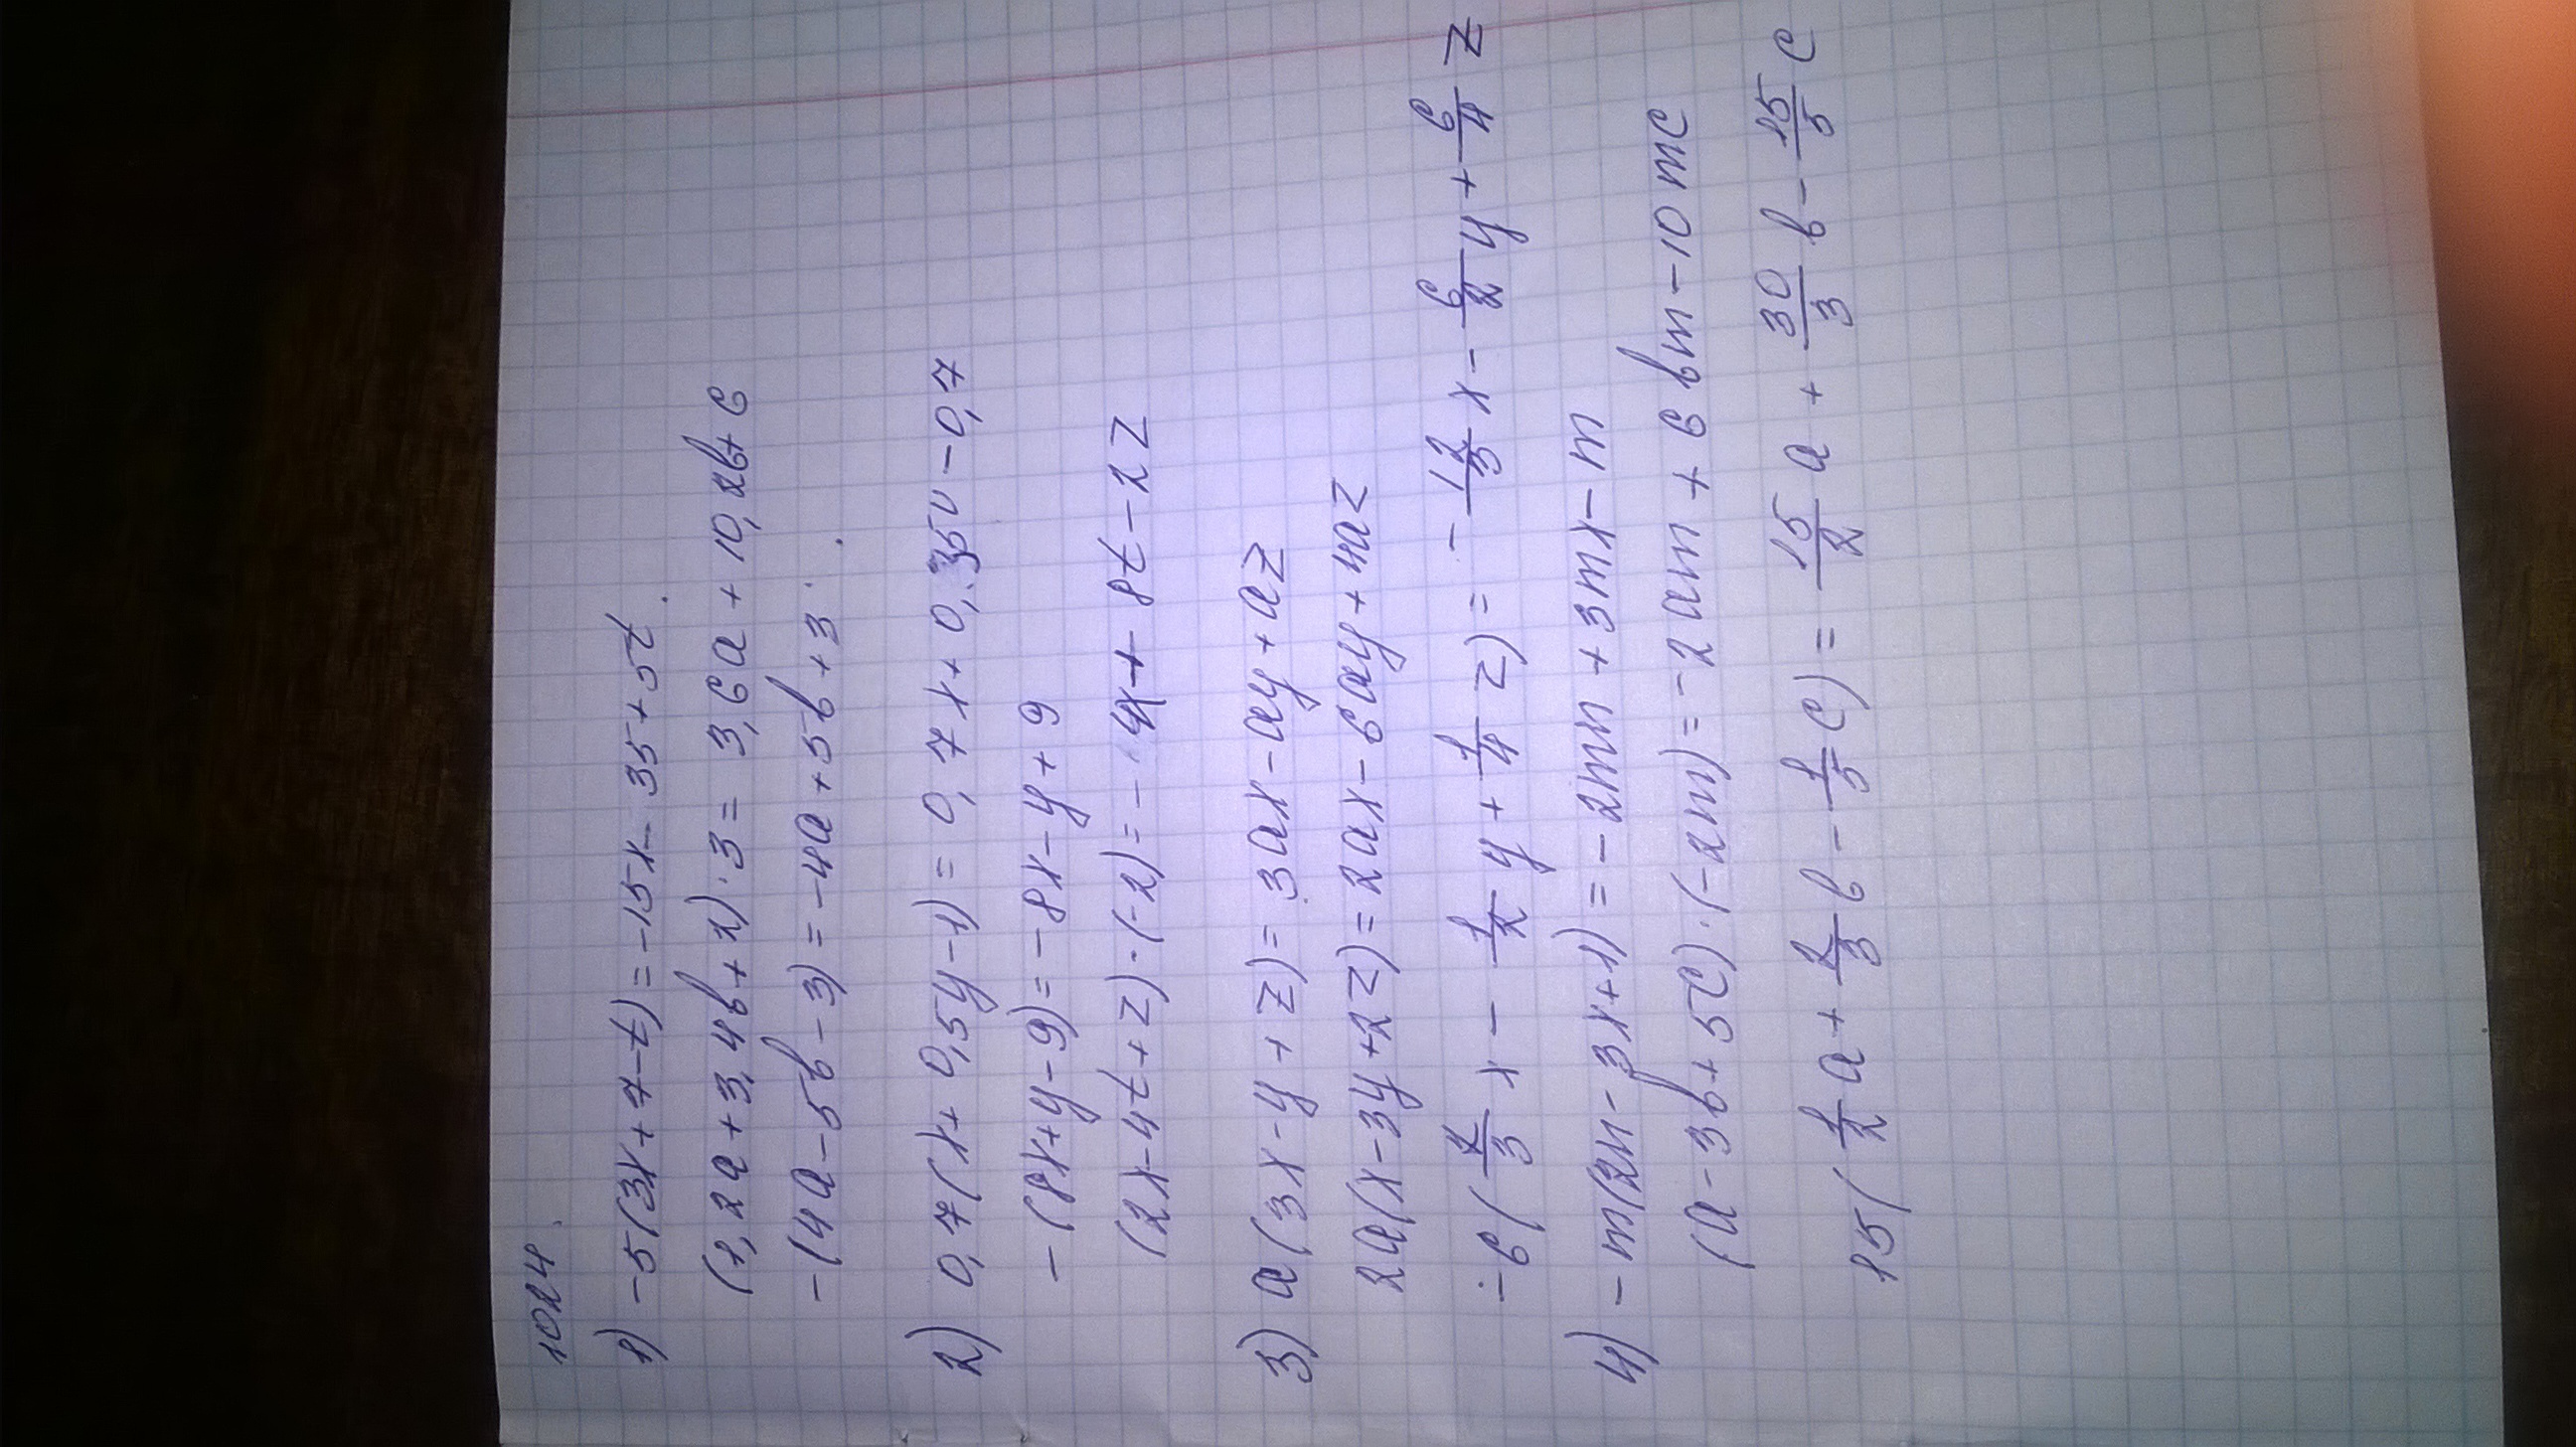 1024.
1) -5(3x+7-t)=-15x-35+5t.
(1,2a+3,4b+2)·3=3,6a+10,2b+6
-(4a-5b-3)=-4a+5b+3.
2) 0,7(x+0,5y-1)=0,7x+0,35y-0,7
-(8x+y-9)=-8x-y+9
(2x-4t+z)·(-2)=-4x+8t-2z
3) a(3x-y+z)=3ax-ay+az
2a(x-3y+2z)=2ax-6ay+4az
-6(2/3 x - 1/2 y + 1/4 z) = -12/3 x - 6/2 y + 6/4 z
4) -m(2n-3x+1)=-2mn+3mx-m
(a-3b+5c)·(-2m)=-2am+6bm-10mc
15(1/2 a + 2/3 b - 1/5 c) = 15/2 a + 30/3 b - 15/5 c